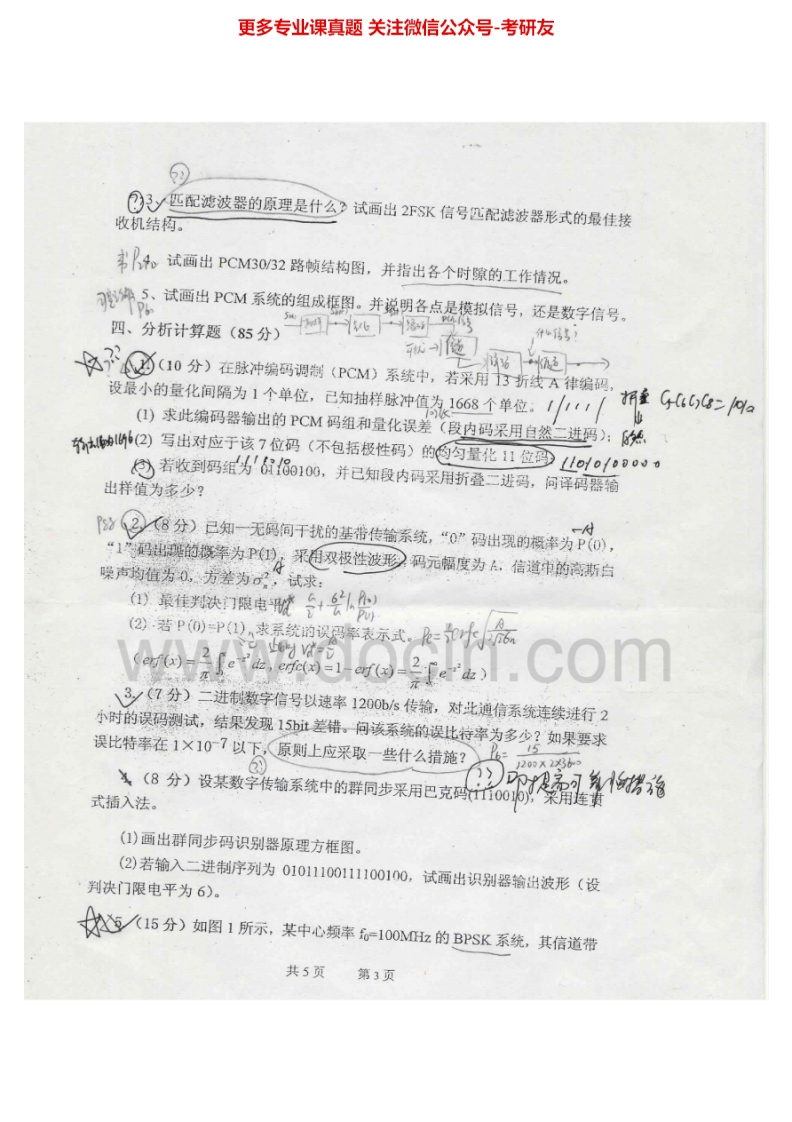 更多专业课真题 关注微信公众号-考研友
3、匹配滤波器的原理是什么？试画出 2FSK 信号匹配滤波器形式的最佳接
收机结构。
4、试画出 PCM30/32 路帧结构图，并指出各个时隙的工作情况。
5、试画出 PCM 系统的组成框图。并说明各点是模拟信号，还是数字信号。
四、分析计算题（85 分）
1.（10 分）在脉冲编码调制（PCM）系统中，若采用 13 折线 A 律编码，
设最小的量化间隔为 1 个单位，已知抽样脉冲值为 1668 个单位。
(1) 求此编码器输出的 PCM 码组和量化误差（段内码采用自然二进码）；
(2) 写出对应于该 7 位码（不包括极性码）的均匀量化 11 位码。
11010100000
(3) 若收到码组为 01100100，并已知段内码采用折叠二进码，问译码器输
出样值为多少？
2.（8 分）已知一无码间干扰的基带传输系统，“0”码出现的概率为 P(0)，
“1”码出现的概率为 P(1)，采用双极性波形，码元幅度为 A，信道中的高斯白
噪声均值为 0，方差为 σn²，试求：
(1) 最佳判决门限电平
(2) 若 P(0)=P(1)，求系统的误码率表示式。
（erf(x) = 2/π ∫₀ˣ e^(-z²) dz, erfc(x) = 1 - erf(x) = 2/π ∫ₓ^∞ e^(-z²) dz）
www.docin.com
3.（7 分）二进制数字信号以速率 1200b/s 传输，对此通信系统连续进行 2
小时的误码测试，结果发现 15bit 差错。问该系统的误比特率为多少？如果要求
误比特率在 1×10⁻⁷ 以下，原则上应采取一些什么措施？
Pb = 15 / 1200×2×3600
4（8 分）设某数字传输系统中的群同步采用巴克码(1110010)，采用连贯
式插入法。
(1)画出群同步码识别器原理方框图。
(2)若输入二进制序列为 01011100111100100，试画出识别器输出波形（设
判决门限电平为 6）。
5（15 分）如图 1 所示，某中心频率 f₀=100MHz 的 BPSK 系统，其信道带
共 5 页 第 3 页